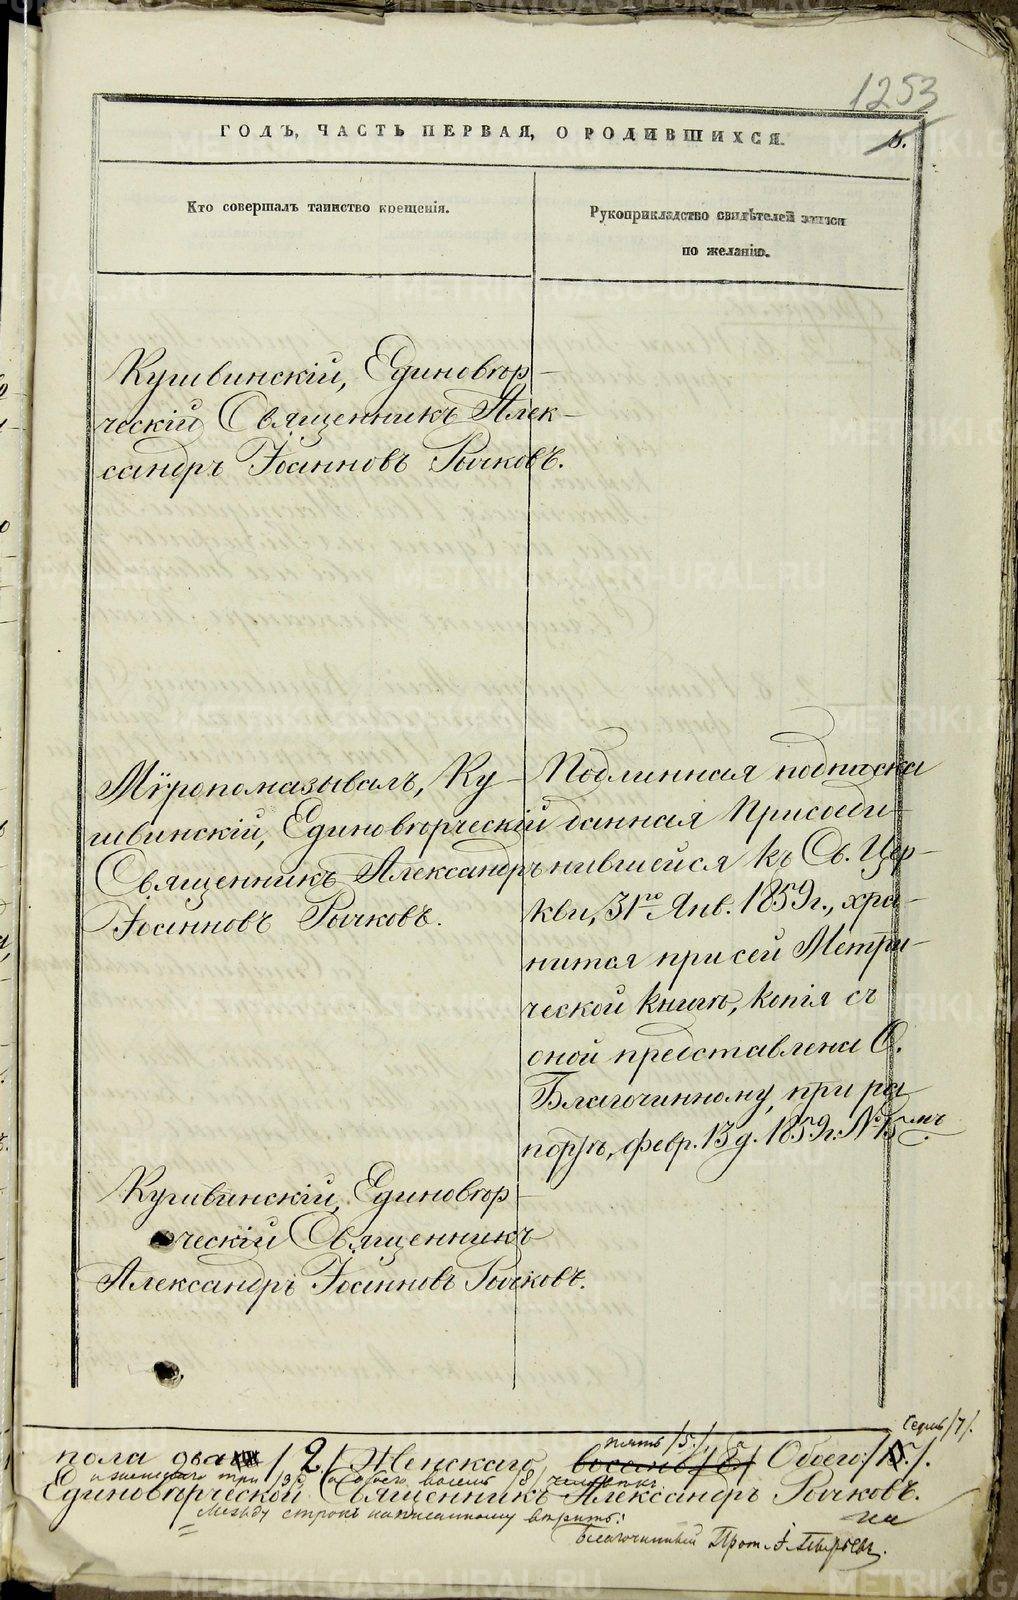 1253
ГОДЪ, ЧАСТЬ ПЕРВАЯ, О РОДИВШИХСЯ.
Кто совершалъ таинство крещенія.
Рукоприкладство свидѣтелей записи
по желанію.
Кушвинскій, Единовѣр-
ческій Священникъ Алек-
сандръ Іоанновъ Рычковъ.
Мѵропомазывалъ, Ку-
швинскій, Единовѣрческій
Священникъ Александръ
Іоанновъ Рычковъ.
Подлинная подписка
данная Присоеди-
нившейся къ Св. Цер-
кви, 31го Янв. 1859г., хра-
нится при сей Метри-
ческой книгѣ, копія съ
оной представлена О.
Благочинному, при ра-
портѣ, февр. 13 д. 1859г. № 15мъ
Кушвинскій, Единовѣр-
ческій Священникъ
Александръ Іоанновъ Рычковъ.
семь /7/.
пять /5/.
пола два /2/ Женскаго, восемь /8/ Обоего:
а женскаго три /3/, а обоего восемь /8/ человѣкъ.
Единовѣрческой Священникъ Александръ Рычковъ.
Между строкъ написанному вѣрить:
Благочинный Прот. І.